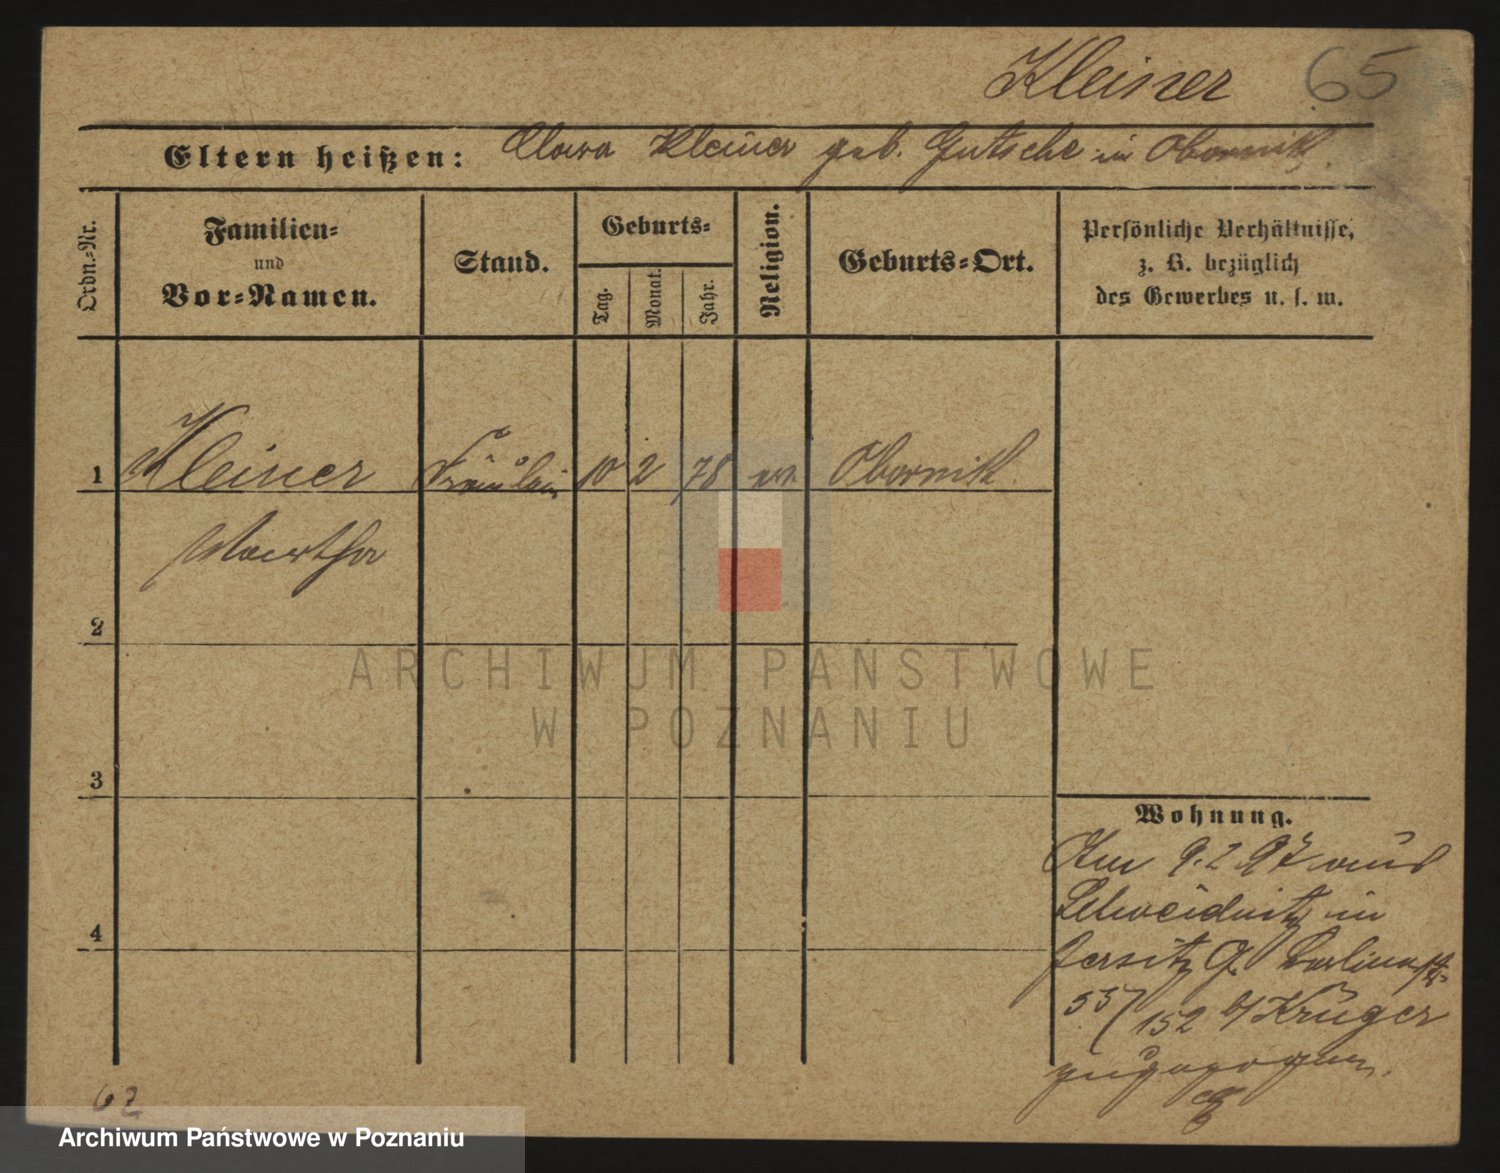 Kleiner 65
Eltern heißen: Clara Kleiner geb. Gutsche in Obornik.
Ordn.-Nr.
Familien-
und
Vor-Namen.
Stand.
Geburts-
Tag.
Monat.
Jahr.
Religion.
Geburts-Ort.
Persönliche Verhältnisse,
z. B. bezüglich
des Gewerbes u. s. w.
1 Kleiner Fräulein 10 2 78 ev. Obornik.
Martha
2
ARCHIWUM PAŃSTWOWE
W POZNANIU
3
4
Wohnung.
Am 9.2.97 aus
Schweidnitz in
Jersitz Gr. Berlinerstr
55/152 b/Krüger
zugezogen.
62
Archiwum Państwowe w Poznaniu